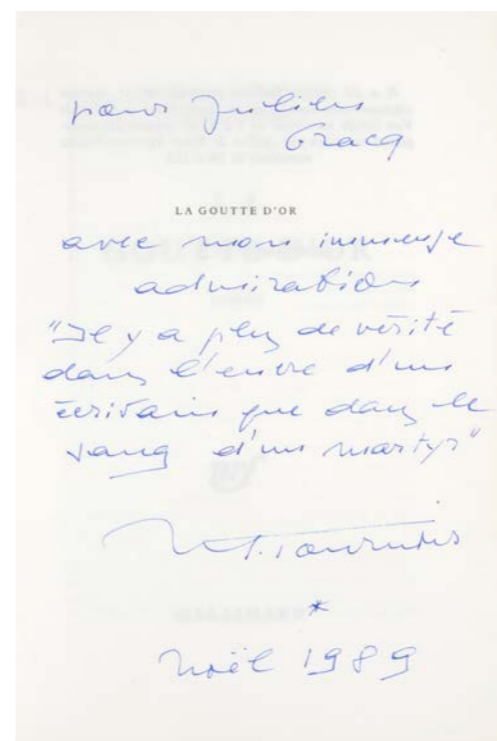 pour Julien
Gracq
LA GOUTTE D'OR
avec mon immense
admiration
"Il y a plus de vérité
dans l'encre d'un
écrivain que dans le
sang d'un martyr"
M. Tournier
*
Noël 1989